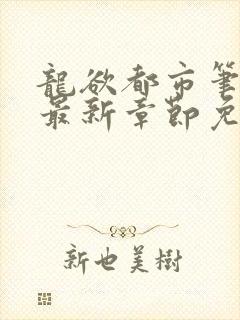 龍欲都市筆
最新章節免
新也美樹